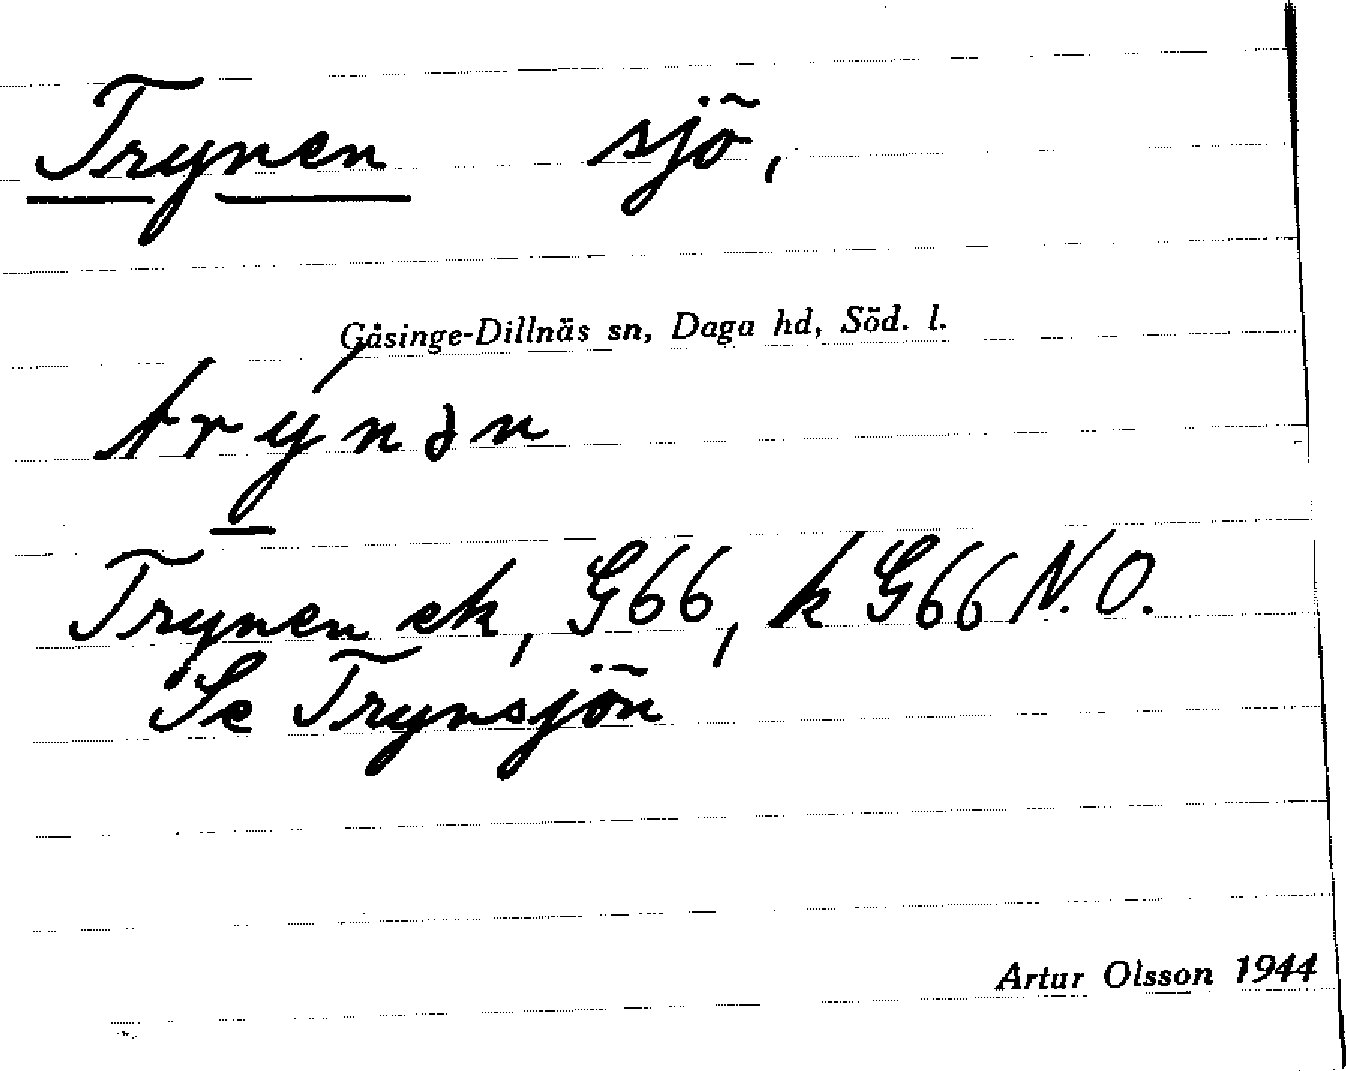 Trynen sjö,
Gåsinge-Dillnäs sn, Daga hd, Söd. l.
trýnən
Trynen ek, G66, k G66 N.O.
Se Trynsjön
Artur Olsson 1944